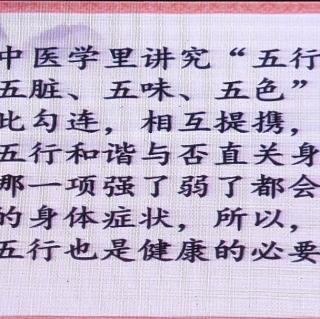 中医学里讲究“五行
五脏、五味、五色”
比勾连，相互提携，
五行和谐与否直关身
那一项强了弱了都会
的身体症状，所以，
五行也是健康的必要